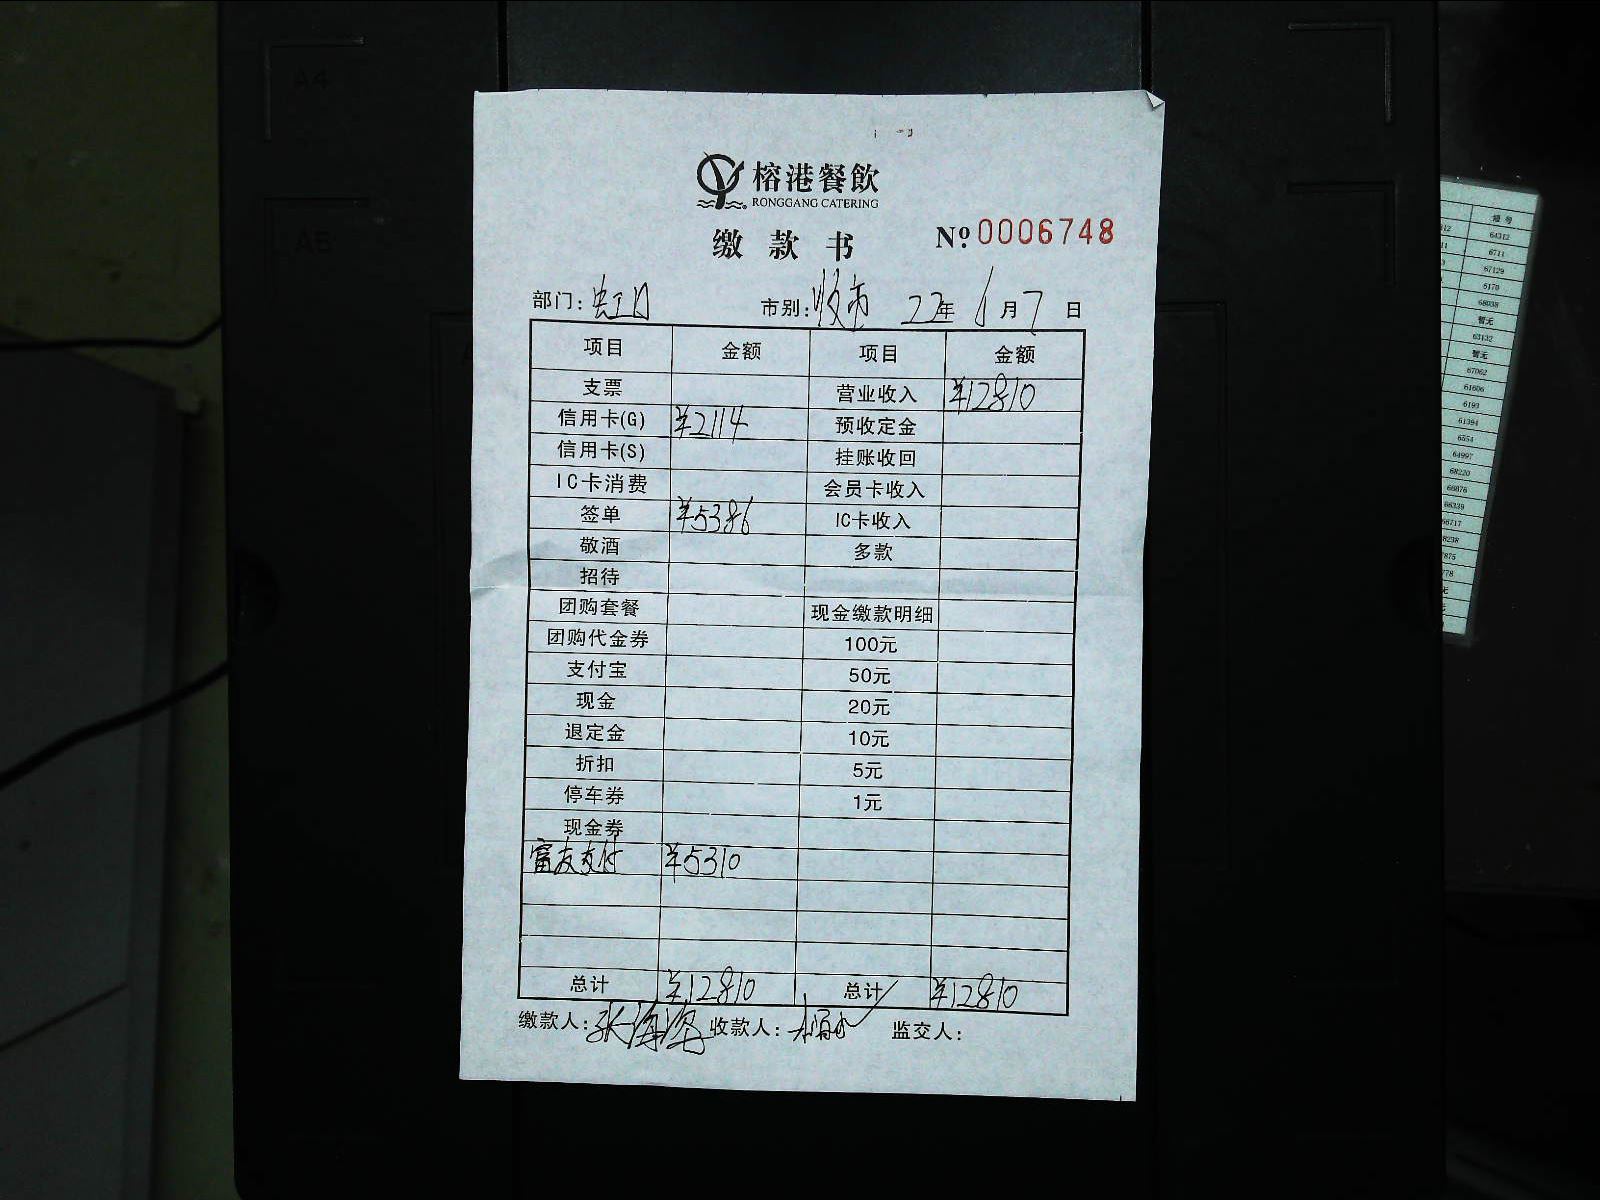 榕港餐飲
RONGGANG CATERING
缴款书 Nº 0006748
部门: 虹口 市别: 收市 22年 1月 7日
项目 金额 项目 金额
支票 营业收入 ¥12810
信用卡(G) ¥2114 预收定金
信用卡(S) 挂账收回
IC卡消费 会员卡收入
签单 ¥5386 IC卡收入
敬酒 多款
招待
团购套餐 现金缴款明细
团购代金券 100元
支付宝 50元
现金 20元
退定金 10元
折扣 5元
停车券 1元
现金券
富友支付 ¥5310
总计 ¥12810 总计 ¥12810
缴款人: 张海 收款人: 监交人:
短号
64312
6711
67129
6170
68038
暂无
63132
暂无
67062
61606
6193
61394
6554
64997
68220
66876
66339
66717